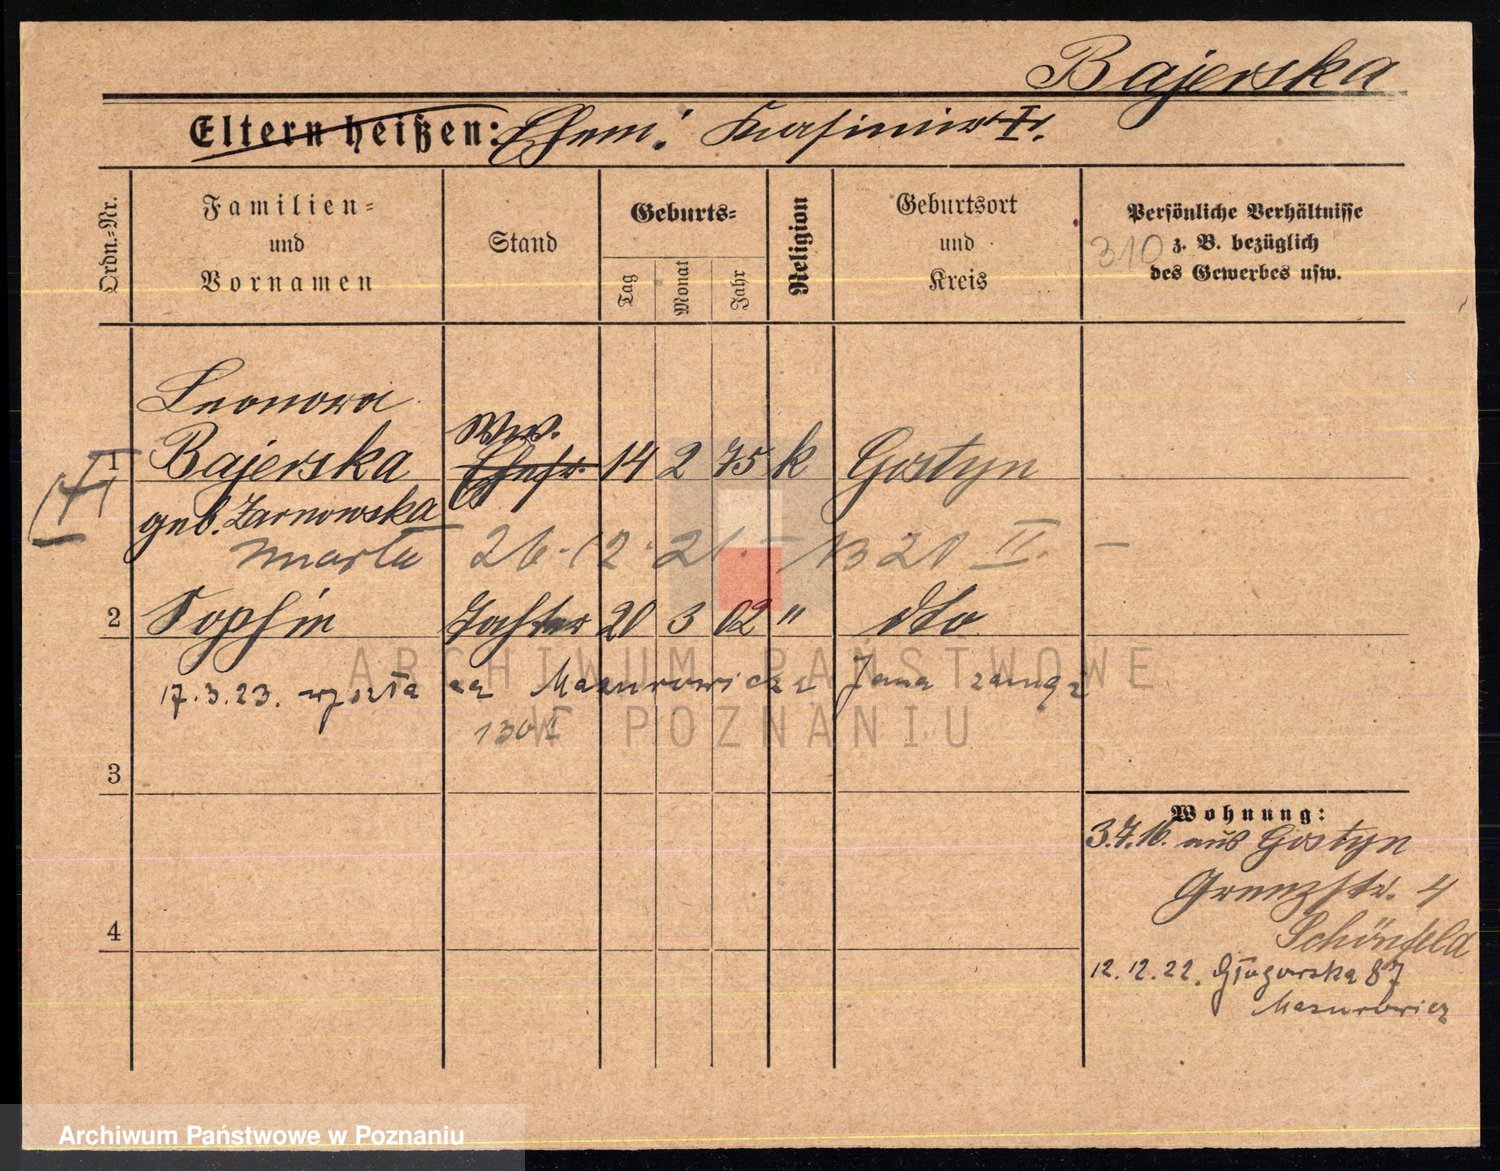 Bajerska
Eltern heißen: Ehem: Kasimir †.
Ordn.-Nr.
Familien-
und
Vornamen
Stand
Geburts-
Tag
Monat
Jahr
Religion
Geburtsort
und
Kreis
Persönliche Verhältnisse
z. B. bezüglich
des Gewerbes usw.
310
Leonora
Ww.
1 Bajerska Ehefr. 14 2 75 k Gostyn
geb. Żarnowska
marła 26-12-21. – 1321 II. –
2 Sophie Tochter 20 3 02 " dto
17.3.23. wyszła za Mazurowicza Jana zamąż
130
3
4
Wohnung:
3.7.16. aus Gostyn
Grenzstr. 4
Schönfeld
12.12.22. Głogowska 87
Mazurowicz
ARCHIWUM PAŃSTWOWE
W POZNANIU
Archiwum Państwowe w Poznaniu